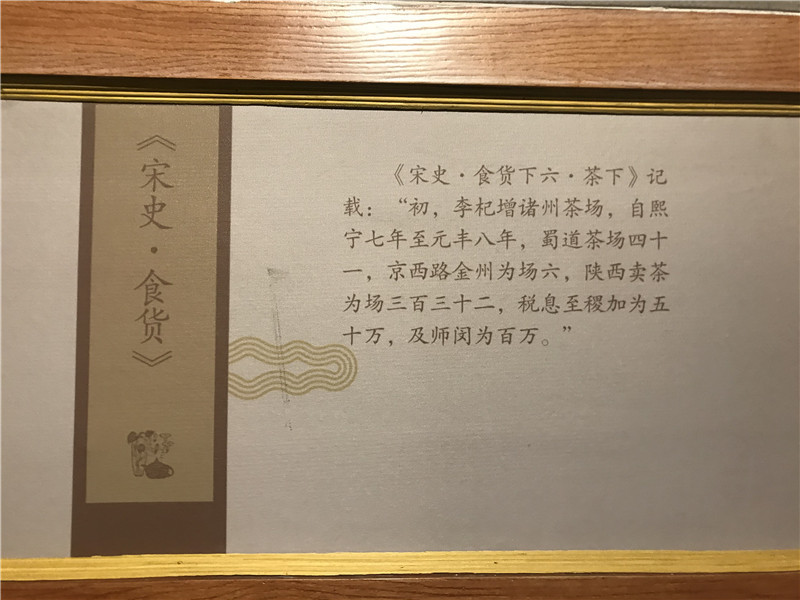 《宋史·食货》
《宋史·食货下六·茶下》记
载：“初，李杞增诸州茶场，自熙
宁七年至元丰八年，蜀道茶场四十
一，京西路金州为场六，陕西卖茶
为场三百三十二，税息至稷加为五
十万，及师闵为百万。”